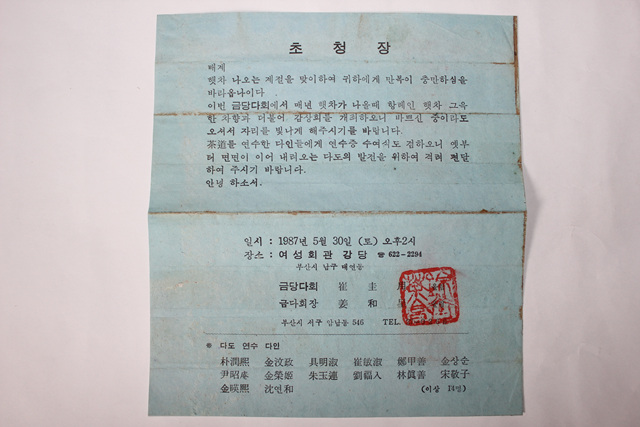 초 청 장
배계
햇차 나오는 계절을 맞이하여 귀하에게 만복이 충만하심을
바라옵나이다
이번 금당다회에서 매년 햇차가 나올때 함께인 햇차 그윽
한 차향과 더불어 감상회를 개최하오니 바쁘신 중이라도
오셔서 자리를 빛나게 해주시기를 바랍니다.
茶道를 연수한 다인들에게 연수증 수여식도 겸하오니 옛부
터 면면이 이어 내려오는 다도의 발전을 위하여 격려 편달
하여 주시기 바랍니다.
안녕 하소서.
일시 : 1987년 5월 30일 (토) 오후2시
장소 : 여성회관 강당 ☎ 622-2294
부산시 남구 대연동
금당다회 崔 圭
금다회장 姜 和
부산시 서구 암남동 546 TEL
※ 다도 연수 다인
朴潤熙 金汶政 具明淑 崔敏淑 鄭甲善 金상순
尹昭庵 金榮姬 朱玉連 劉福人 林眞善 宋敬子
金暎熙 沈연和 (이상 14명)